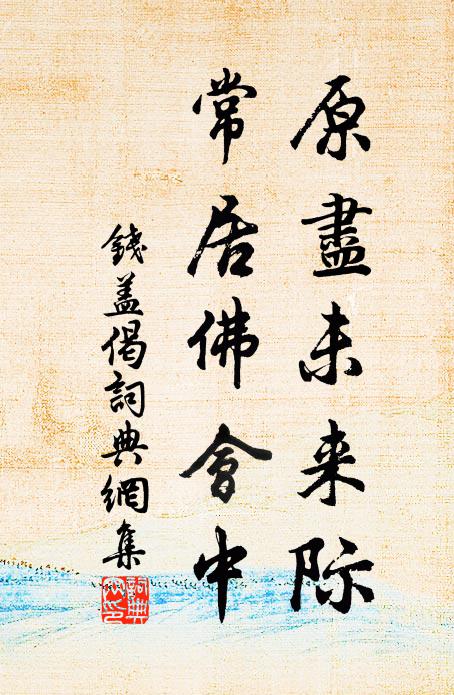 原盡未来际
常居佛會中
錢盖偈詞典網集